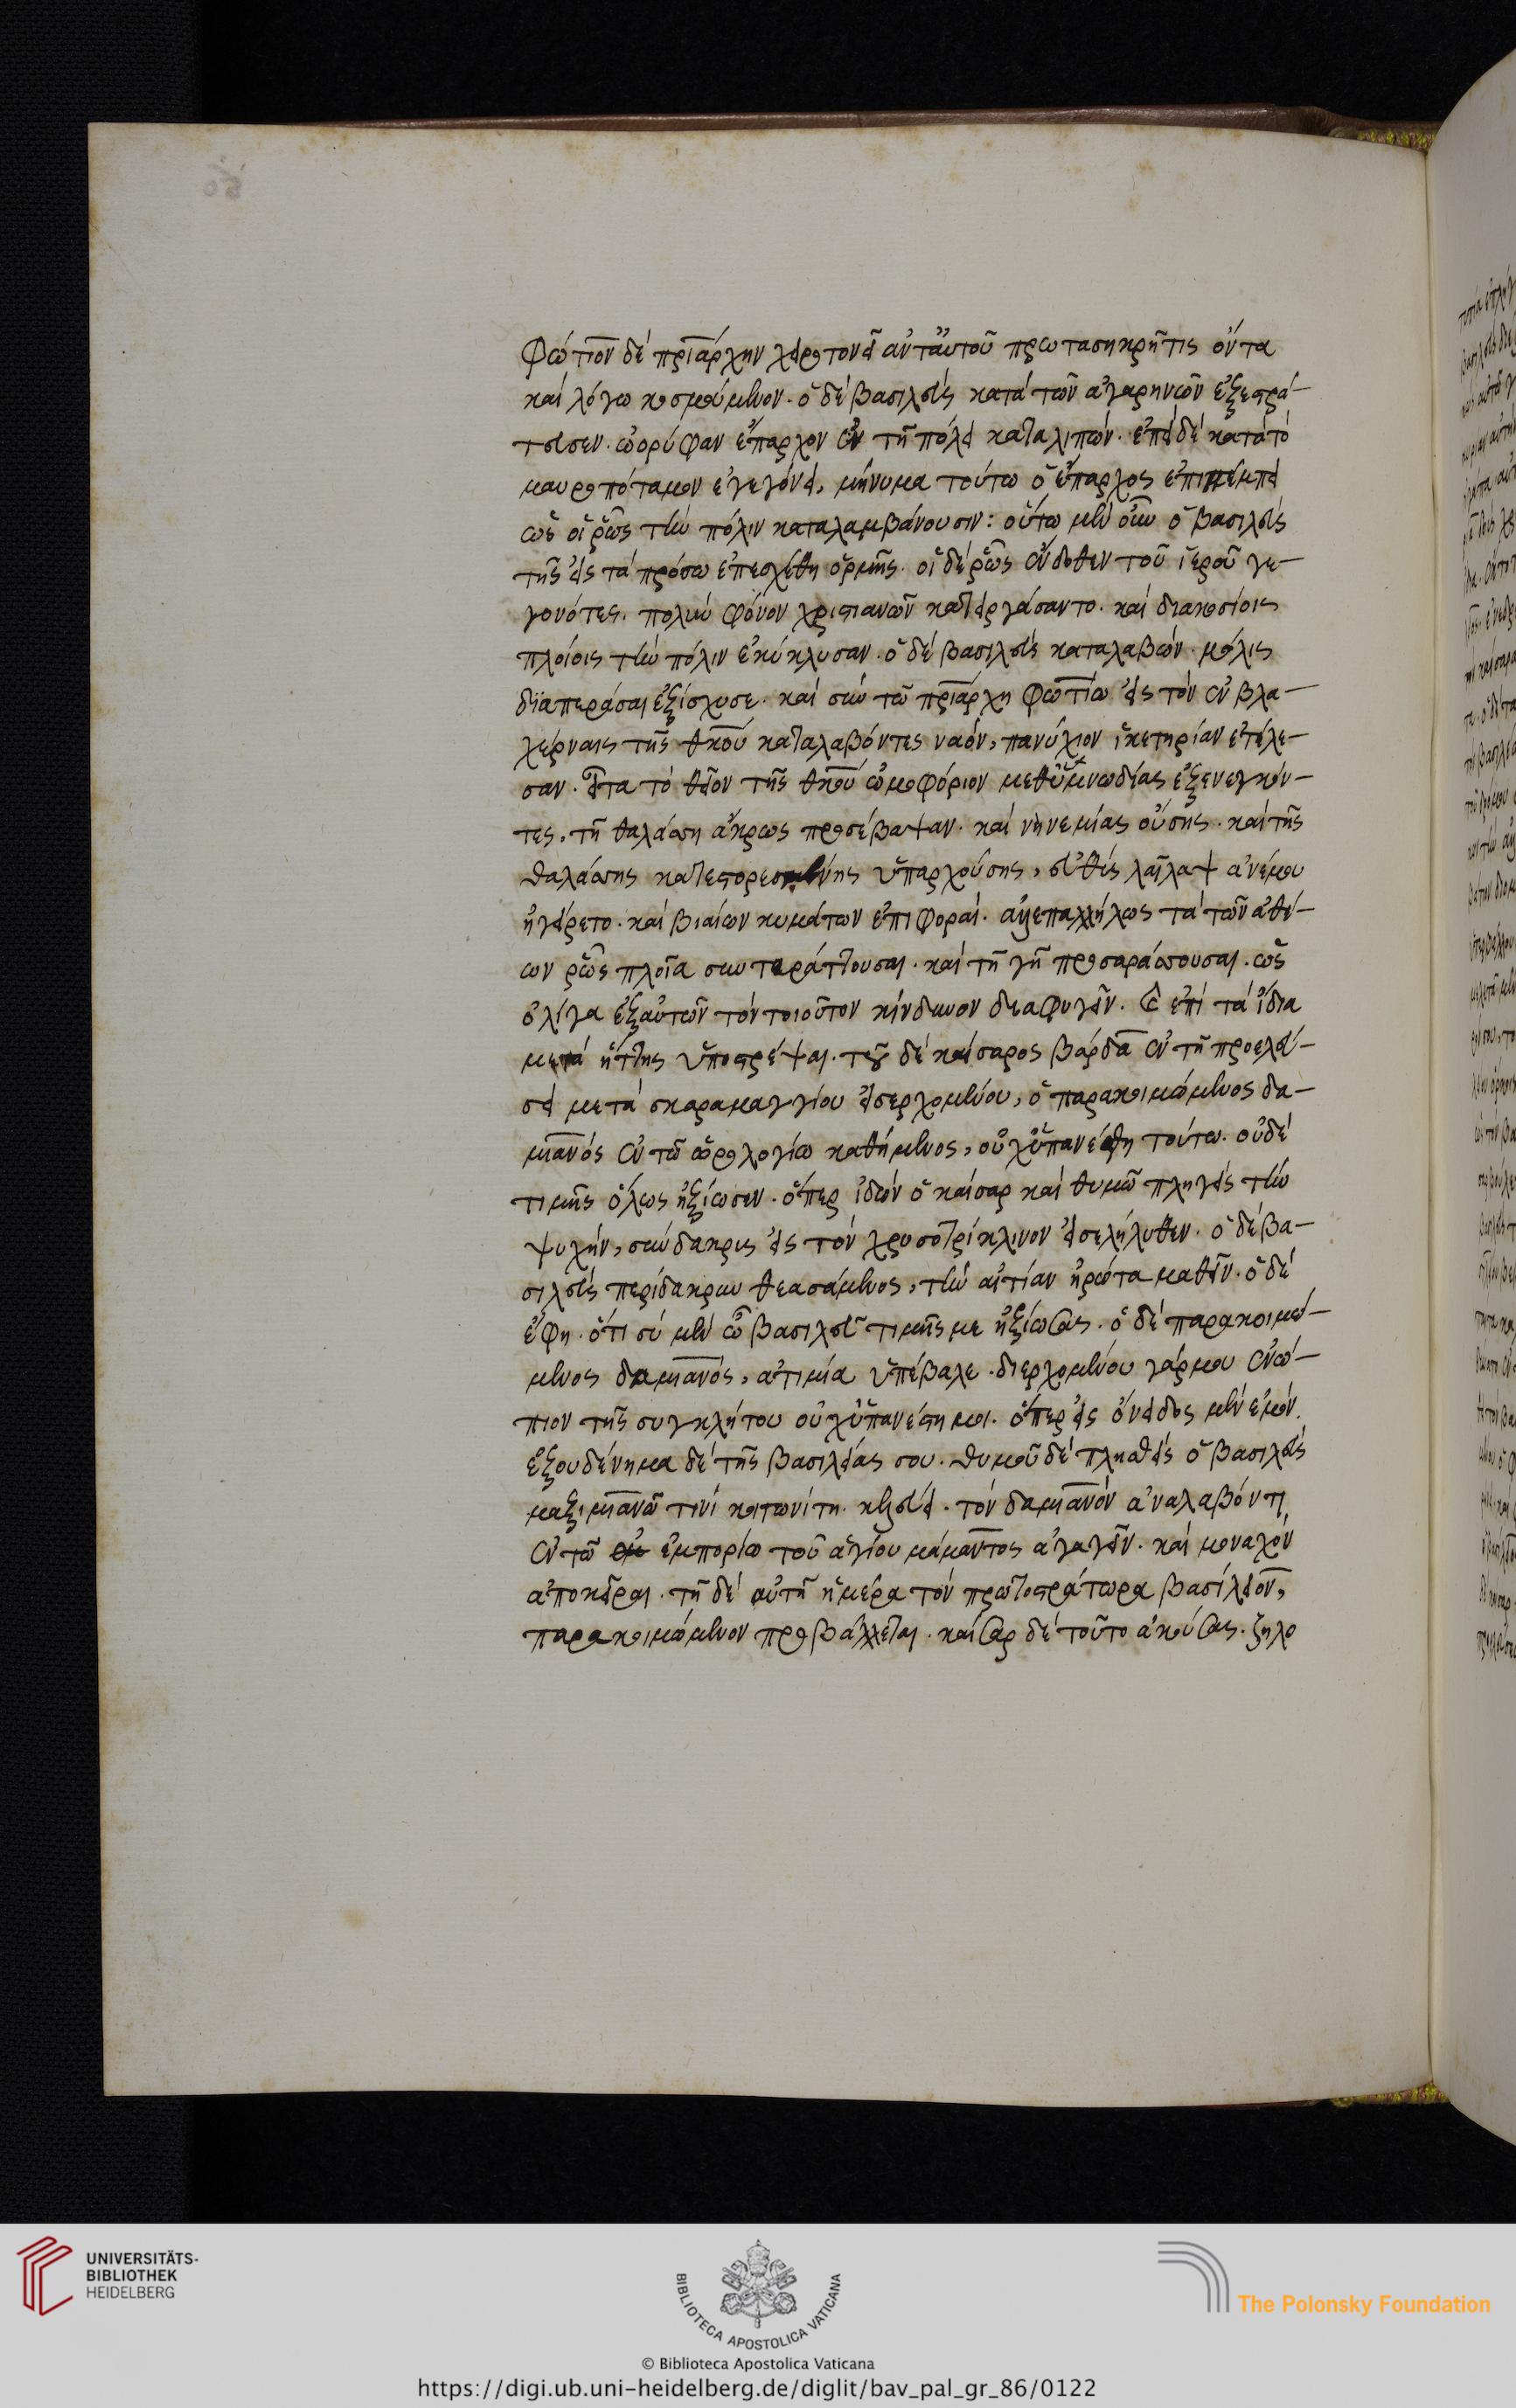 Φώτιον δὲ πριάρχην χειροτονεῖ ἀντ' αὐτοῦ πρωτασηκρῆτις ὄντα
καὶ λόγω κοσμούμενον. ὁ δὲ βασιλεὺς κατὰ τῶν ἀγαρηνῶν ἐξεστρά-
τευσεν. ὠορύφαν ἔπαρχον ἐν τῆ πόλει καταλιπών. ἐπεὶ δὲ κατὰ τὸ
μαυροπόταμον ἐγεγόνει, μήνυμα τούτω ὁ ἔπαρχος ἐπιπέμπει
ὡς οἱ ῥῶς τὴν πόλιν καταλαμβάνουσιν: οὕτω μὲν οὖν ὁ βασιλεὺς
τῆς εἰς τὰ πρόσω ἐπεσχέθη ὁρμῆς. οἱ δὲ ῥῶς ἔνδοθεν τοῦ ἱεροῦ γε-
γονότες. πολὺν φόνον χριστιανῶν κατειργάσαντο. καὶ διακοσίοις
πλοίοις τὴν πόλιν ἐκύκλυσαν. ὁ δὲ βασιλεὺς καταλαβών. μόλις
διαπεράσαι ἐξίσχυσε. καὶ σὺν τῶ πριάρχη Φωτίω εἰς τὸν ἐν βλα-
χέρναις τῆς θκου καταλαβόντες ναὸν, πανύχιον ἱκετηρίαν ἐτέλε-
σαν. εἶτα τὸ θεῖον τῆς θκου ὠμοφόριον μεθ' ὑμνωδίας ἐξενεγκόν-
τες, τῆ θαλάσση ἄκρως προσέβαψαν. καὶ νηνεμίας οὔσης. καὶ τῆς
θαλάσσης κατεστορεσμένης ὑπαρχούσης, εὐθὺς λαῖλαψ ἀνέμου
ἠγείρετο. καὶ βιαίων κυμάτων ἐπιφοραί. αἳ ἐπαλλήλως τὰ τῶν ἀθέ-
ων ῥῶς πλοῖα συνταράττουσαι. καὶ τῆ γῆ προσαράσσουσαι. ὡς
ὀλίγα ἐξ αὐτῶν τὸν τοιοῦτον κίνδυνον διαφυγεῖν. καὶ ἐπὶ τὰ ἴδια
μετὰ ἥττης ὑποστρέψαι. τοῦ δὲ καίσαρος βάρδα ἐν τῆ προελεύ-
σει μετὰ σκαραμαγγίου εἰσερχομένου, ὁ παρακοιμώμενος δα-
μιανὸς ἐν τῶ ὡρολογίω καθήμενος, οὐχ ὑπανέστη τούτω. οὐδὲ
τιμῆς ὅλως ἠξίωσεν. ὅπερ ἰδὼν ὁ καίσαρ καὶ θυμῶ πληγεὶς τὴν
ψυχὴν, σύνδακρις εἰς τὸν χρυσοτρίκλινον εἰσελήλυθεν. ὁ δὲ βα-
σιλεὺς περίδακρυν θεασάμενος, τὴν αἰτίαν ἠρώτα μαθεῖν. ὁ δὲ
ἔφη. ὅτι σὺ μὲν ὦ βασιλεῦ τιμῆς με ἠξίωσας. ὁ δὲ παρακοιμώ-
μενος δαμιανὸς, ἀτιμία ὑπέβαλε. διερχομένου γάρ μου ἐνώ-
πιον τῆς συγκλήτου οὐχ ὑπανέστη μοι. ὅπερ εἰς ὄνειδος μὲν ἐμόν.
ἐξουδένημα δὲ τῆς βασιλείας σου. θυμοῦ δὲ πλησθεὶς ὁ βασιλεὺς
μαξιμιανῶ τινὶ κοιτωνίτη κελεύει. τὸν δαμιανὸν ἀναλαβόντι
ἐν τῶ ἐμπορίω τοῦ ἁγίου μάμαντος ἀγαγεῖν. καὶ μοναχὸν
ἀποκεῖραι. τῆ δὲ αὐτῆ ἡμέρα τὸν πρωτοστράτωρα βασίλειον,
παρακοιμώμενον προβάλλεται. καίσαρ δὲ τοῦτο ἀκούσας. ζηλο
UNIVERSITÄTS-
BIBLIOTHEK
HEIDELBERG
BIBLIOTECA APOSTOLICA VATICANA
The Polonsky Foundation
© Biblioteca Apostolica Vaticana
https://digi.ub.uni-heidelberg.de/diglit/bav_pal_gr_86/0122